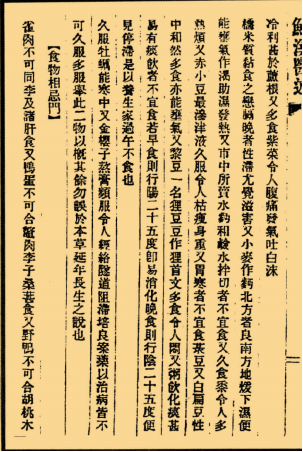 冷利甚於蘆根又多食紫菜令人腹痛發氣吐白沫
橋米質粘食之戀膈晚者性滯尤覺滋害又小麥作麪北方者良南方地煖下濕便
能壅氣作渴助濕發熱又市中所賣水麪和鹼水拌切者不宜食又久食黍令人多
熱煩又赤小豆最滲津液久服令人枯瘦身重又胃寒者不宜食菉豆又白扁豆性
中和然多食亦能壅氣又黎豆一名狸豆豆作狸首文多食令人悶又粥飲化痰甚
易有痰飲者不宜食若早食則行陽二十五度卽易消化晚食則行陰二十五度便
見停滯是以養生家過午不食也
久服牡蠣能寒中又金櫻子熬膏頻服令人經絡隧道阻滯培良藥藥以治病皆不
可久服多服舉此二物以概其餘勿誤於本草延年長生之說也
【食物相忌門】
雀肉不可同李及諸肝食又鴨蛋不可合鼈肉李子桑葚食又野鴨不可合胡桃木